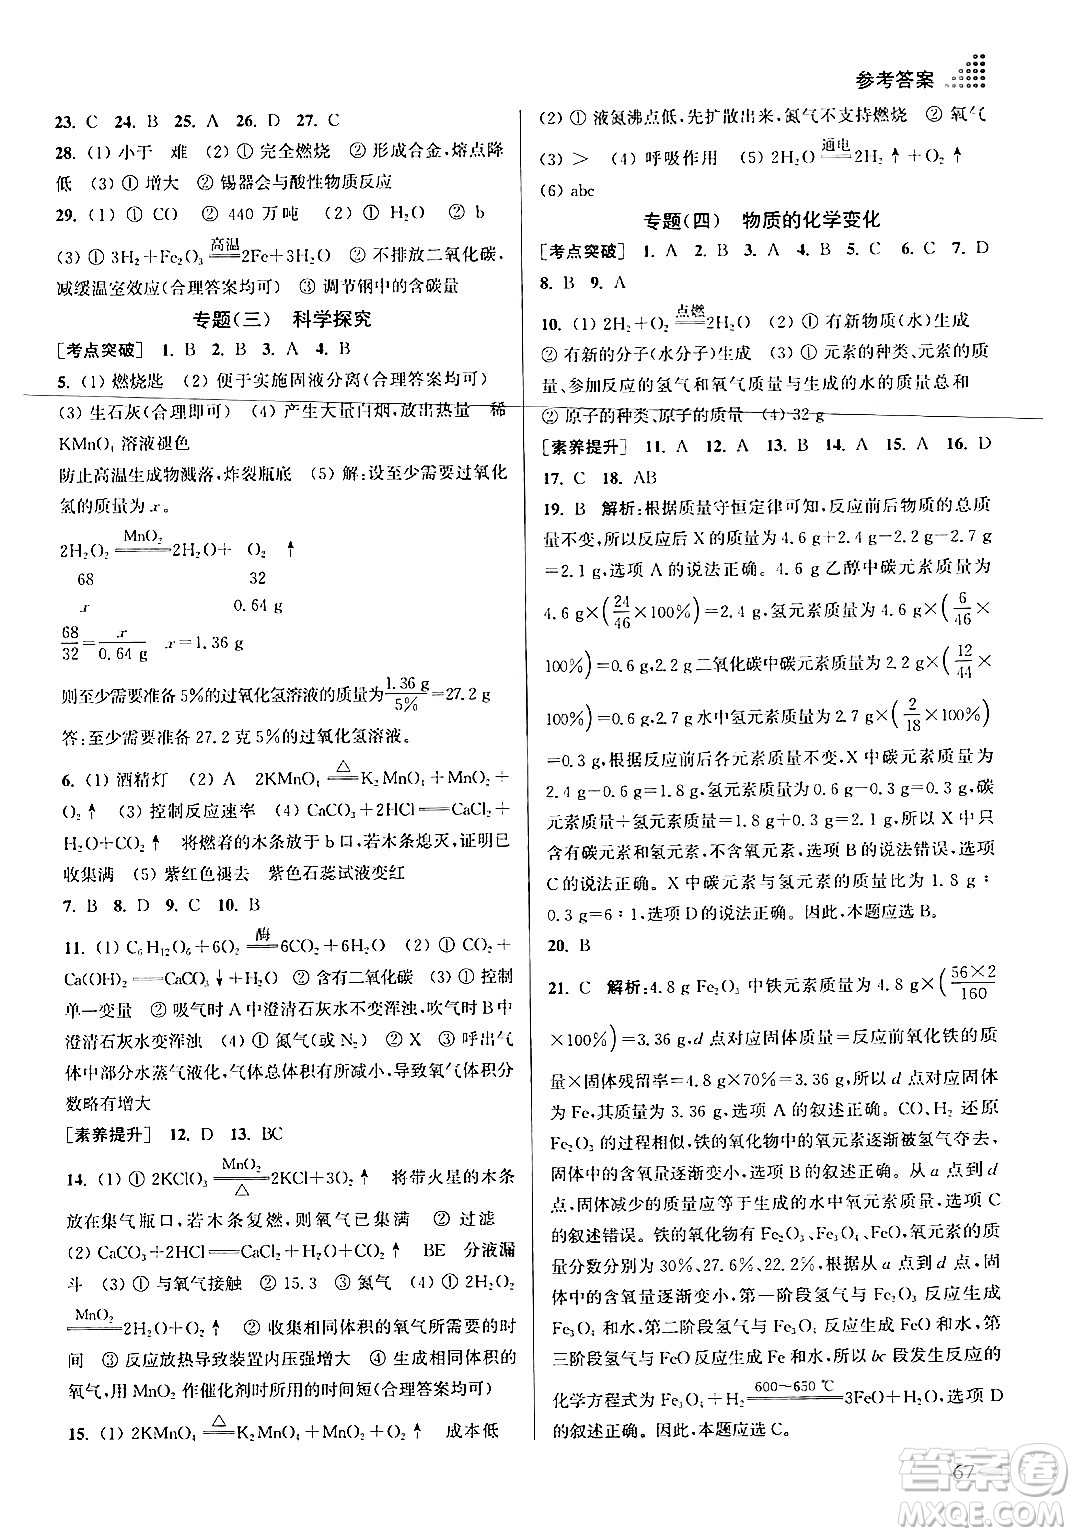 参考答案
23. C 24. B 25. A 26. D 27. C
28. (1) 小于 难 (2) ① 完全燃烧 ② 形成合金,熔点降
低 (3) ① 增大 ② 锡器会与酸性物质反应
29. (1) ① CO ② 440 万吨 (2) ① H₂O ② b
(3) ① 3H₂+Fe₂O₃ 高温 2Fe+3H₂O ② 不排放二氧化碳,
减缓温室效应(合理答案均可) ③ 调节钢中的含碳量
专题(三) 科学探究
[考点突破] 1. B 2. B 3. A 4. B
5. (1) 燃烧匙 (2) 便于实施固液分离(合理答案均可)
(3) 生石灰(合理即可) (4) 产生大量白烟,放出热量 稀
KMnO₄ 溶液褪色
防止高温生成物溅落,炸裂瓶底 (5) 解:设至少需要过氧化
氢的质量为 x。
2H₂O₂ MnO₂ 2H₂O+ O₂ ↑
68 32
x 0.64 g
68/32=x/0.64 g x=1.36 g
则至少需要准备 5%的过氧化氢溶液的质量为 1.36 g/5%=27.2 g
答:至少需要准备 27.2 克 5%的过氧化氢溶液。
6. (1) 酒精灯 (2) A 2KMnO₄ △ K₂MnO₄+MnO₂+
O₂ ↑ (3) 控制反应速率 (4) CaCO₃+2HCl══CaCl₂+
H₂O+CO₂ ↑ 将燃着的木条放于 b 口,若木条熄灭,证明
收集满 (5) 紫红色褪去 紫色石蕊试液变红
7. B 8. D 9. C 10. B
11. (1) C₆H₁₂O₆+6O₂ 酶 6CO₂+6H₂O (2) ① CO₂+
Ca(OH)₂══CaCO₃↓+H₂O ② 含有二氧化碳 (3) ① 控制
单一变量 ② 吸气时 A 中澄清石灰水不变浑浊,吹气时 B 中
澄清石灰水变浑浊 (4) ① 氮气(或 N₂) ② X ③ 呼出气
体中部分水蒸气液化,气体总体积减小,导致氮气体积分
数略有增大
[素养提升] 12. D 13. BC
14. (1) ① 2KClO₃ MnO₂ △ 2KCl+3O₂ ↑ 将带火星的木条
放在集气瓶口,若木条复燃,则氧气已集满 ② 过滤
(2) CaCO₃+2HCl══CaCl₂+H₂O+CO₂ ↑ BE 分液漏
斗 (3) ① 与氧气接触 ② 15.3 ③ 氮气 (4) ① 2H₂O₂
MnO₂ 2H₂O+O₂ ↑ ② 收集相同体积的氧气所需要的时
间 ③ 反应放热导致装置内压强增大 ④ 生成相同体积的
氧气,用 MnO₂ 作催化剂时所用的时间短(合理答案均可)
15. (1) ① 2KMnO₄ △ K₂MnO₄+MnO₂+O₂ ↑ 成本低
(2) ① 液氮沸点低,先扩散出来,氮气不支持燃烧 ② 氧气
(3) > (4) 呼吸作用 (5) 2H₂O 通电 2H₂ ↑+O₂ ↑
(6) abc
专题(四) 物质的化学变化
[考点突破] 1. A 2. B 3. B 4. A 5. C 6. C 7. D
8. B 9. A
10. (1) 2H₂+O₂ 点燃 2H₂O (2) ① 有新物质(水)生成
② 有新的分子(水分子)生成 (3) ① 元素的种类、元素的质
量、参加反应的氢气和氧气质量与生成的水的质量总和
② 原子的种类、原子的质量 (4) 32 g
[素养提升] 11. A 12. A 13. B 14. A 15. A 16. D
17. C 18. AB
19. B 解析:根据质量守恒定律可知,反应前后物质的总质
量不变,所以反应后 X 的质量为 4.6 g+2.4 g-2.2 g-2.7 g
=2.1 g,选项 A 的说法正确。4.6 g 乙醇中碳元素质量为
4.6 g×(24/46×100%)=2.4 g,氢元素质量为 4.6 g×(6/46×
100%)=0.6 g,2.2 g 二氧化碳中碳元素质量为 2.2 g×(12/44×
100%)=0.6 g,2.7 g 水中氢元素质量为 2.7 g×(2/18×100%)
=0.3 g。根据反应前后各元素质量不变,X 中碳元素质量为
2.4 g-0.6 g=1.8 g,氢元素质量为 0.6 g-0.3 g=0.3 g,碳
元素质量+氢元素质量=1.8 g+0.3 g=2.1 g,所以 X 中只
含有碳元素和氢元素,不含氧元素,选项 B 的说法错误,选项
C 的说法正确。X 中碳元素与氢元素的质量比为 1.8 g∶
0.3 g=6∶1,选项 D 的说法正确。因此,本题应选 B。
20. B
21. C 解析:4.8 g Fe₂O₃ 中铁元素质量为 4.8 g×(56×2/160
×100%)=3.36 g,d 点对应固体质量=反应前氧化铁的质
量×固体残留率=4.8 g×70%=3.36 g,所以 d 点对应固体
为 Fe,其质量为 3.36 g,选项 A 的叙述正确。CO、H₂ 还原
Fe₂O₃ 的过程相似,铁的氧化物中的氧元素逐渐被氢气夺去,
固体中的含氧量逐渐变小,选项 B 的叙述正确。从 a 点到 d
点,固体减少的质量应等于生成的水中氧元素质量,选项 C
的叙述错误。铁的氧化物有 Fe₂O₃、Fe₃O₄、FeO,氧元素的质
量分数分别为 30%、27.6%、22.2%,所以从 a 点到 d 点,固体
中的含氧量逐渐变小。第一阶段氢气与 Fe₂O₃ 反应生成
Fe₃O₄ 和水,第二阶段氢气与 Fe₃O₄ 反应生成 FeO 和水,第
三阶段氢气与 FeO 反应生成 Fe 和水,所以 bc 段发生反应的
化学方程式为 Fe₃O₄+H₂ 600~650 ℃ 3FeO+H₂O,选项 D
的叙述正确。因此,本题应选 C。
67
答案圈
MXQE.COM